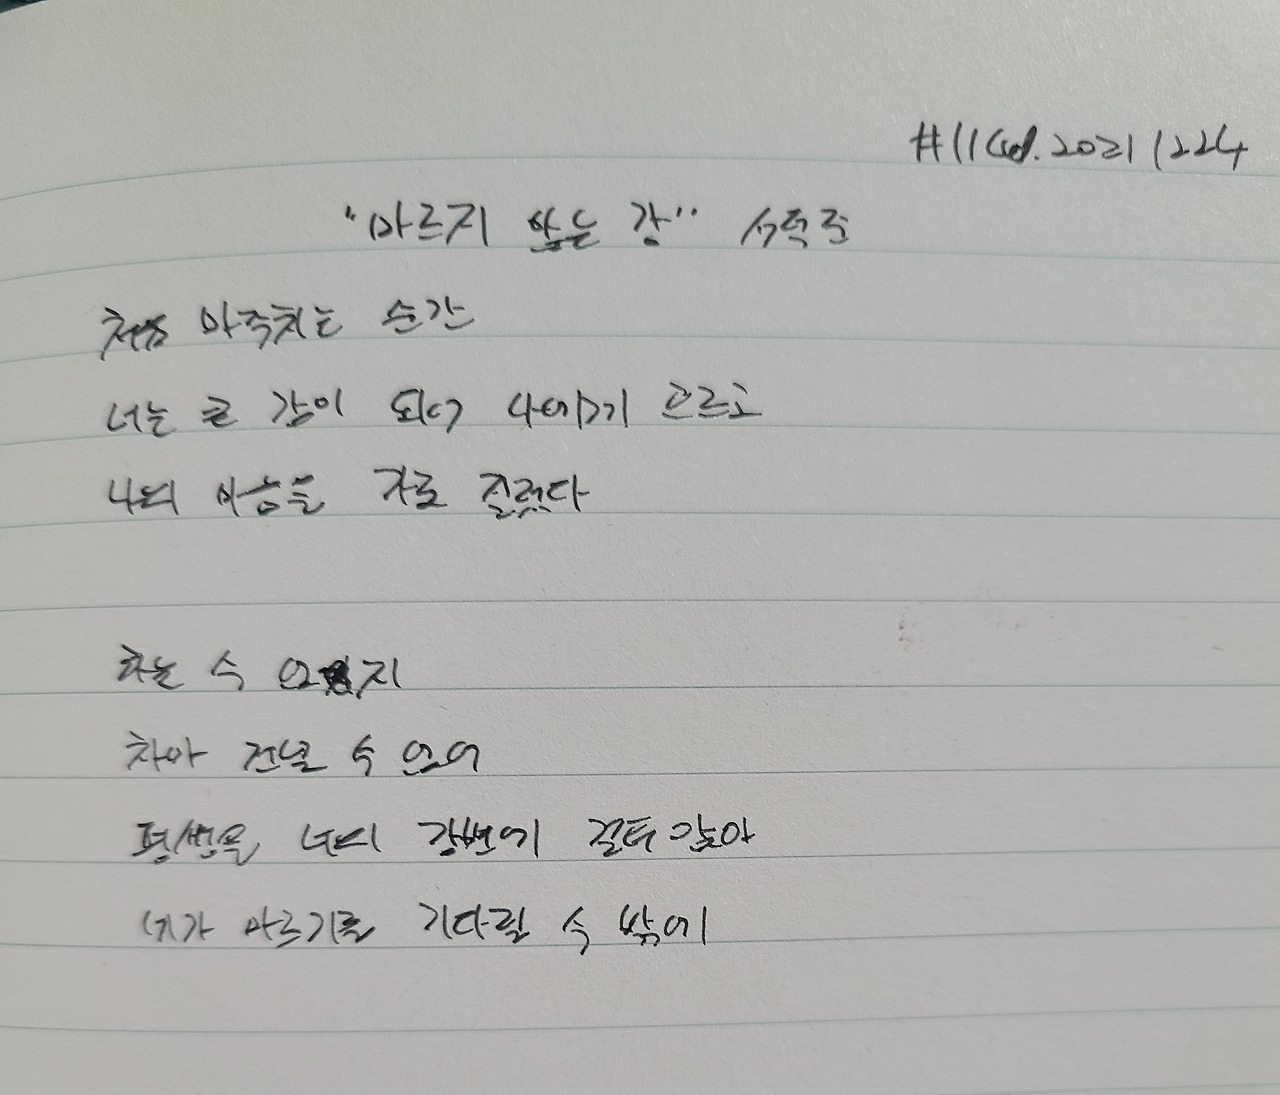 #116rd. 20211224
"마르지 않는 강" 서덕준
처음 마주치는 순간
너는 큰 강이 되어 나에게 흐르고
나의 마음을 가로 질렀다
하는 수 없지
차마 건널 수 없어
평생을 너의 강변에 걸터 앉아
네가 마르기를 기다릴 수 밖에